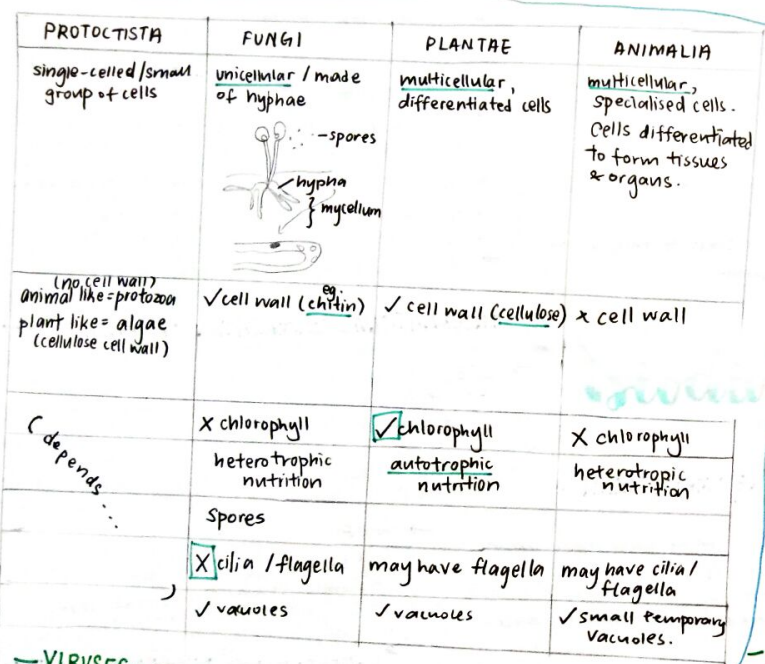 PROTOCTISTA
FUNGI
PLANTAE
ANIMALIA
single-celled/small
group of cells
unicellular / made
of hyphae
-spores
hypha
} mycelium
multicellular,
differentiated cells
multicellular,
specialised cells.
Cells differentiated
to form tissues
& organs.
(no cell wall)
animal like = protozoa
plant like = algae
(cellulose cell wall)
eg.
✓cell wall (chitin)
✓ cell wall (cellulose)
x cell wall
( depends...
)
X chlorophyll
✓chlorophyll
X chlorophyll
heterotrophic
nutrition
autotrophic
nutrition
heterotropic
nutrition
Spores
X cilia / flagella
may have flagella
may have cilia/
flagella
✓ vacuoles
✓ vacuoles
✓ small temporary
vacuoles.
— VIRUSES